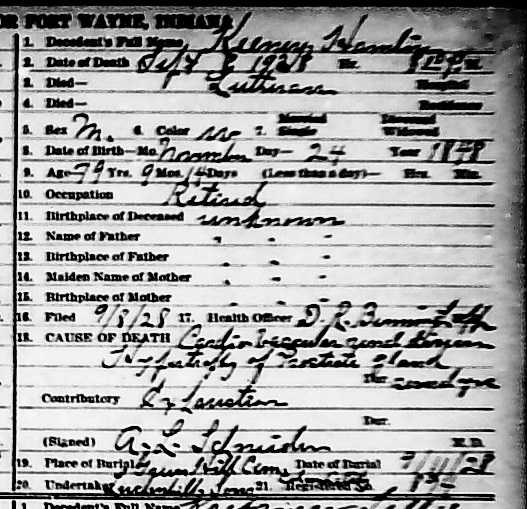 OR FORT WAYNE, INDIANA
1. Decedent's Full Name Keeney Hamlin
2. Date of Death Sept 8 1928 Hr.
3. Died— Lutheran Hospital
4. Died— Residence
5. Sex M. 6. Color w 7. Married Single Divorced Widowed
8. Date of Birth—Mo. November Day— 24 Year 1848
9. Age 79 Yrs. 9 Mos. 14 Days (Less than a day)— Hrs. Min.
10. Occupation Retired
11. Birthplace of Deceased unknown
12. Name of Father " " "
13. Birthplace of Father " " "
14. Maiden Name of Mother " " "
15. Birthplace of Mother " " "
16. Filed 9/8/28 17. Health Officer D. R. Benninghoff
18. CAUSE OF DEATH Cardio Vascular renal disease
Hypertrophy of Prostate gland
Dur.
Contributory Exhaustion
Dur.
(Signed) A. L. Schneider M. D.
19. Place of Burial Hill Cem. Date of Burial 9/11/28
20. Undertaker Sons 21. Registered
1. Decedent's Full Name